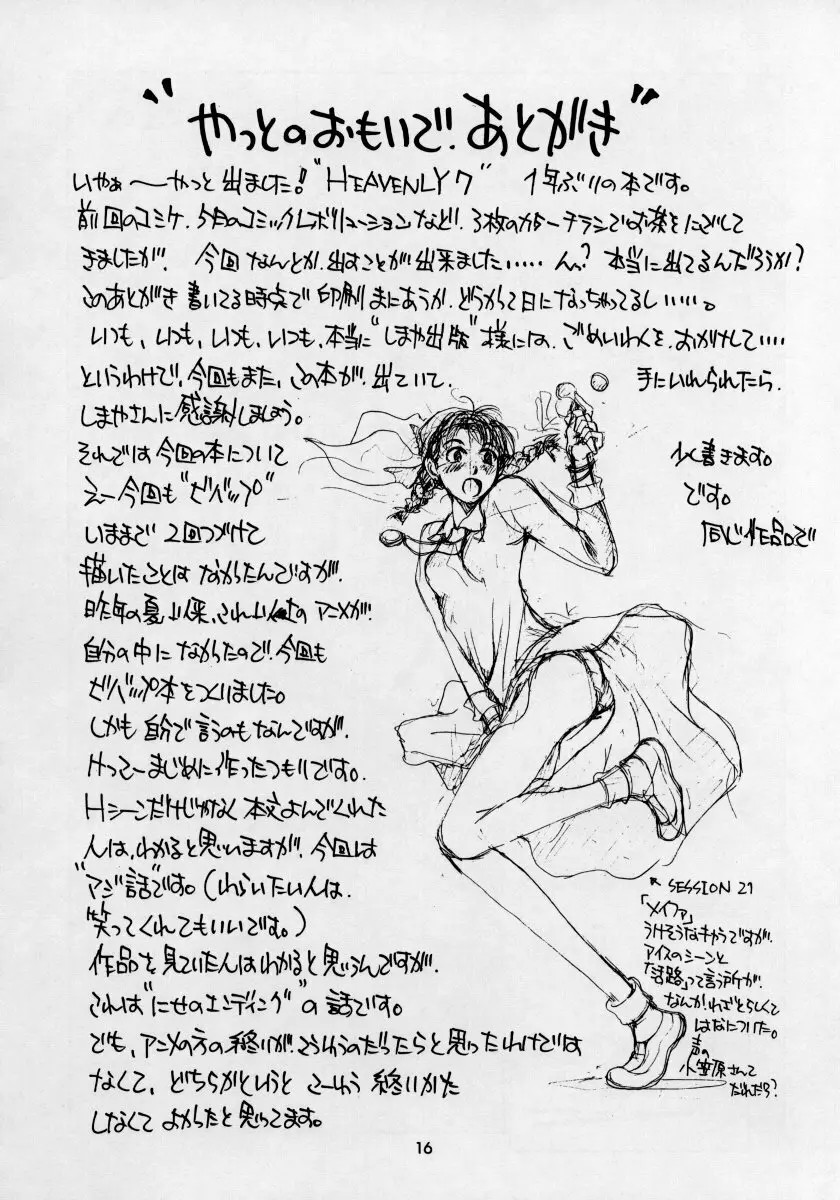 "やっとのおもいで!あとがき"
いやぁ〜やっと出ました!"HEAVENLY7" 1年ぶりの本です。
前回のコミケ、5月のコミックレボリューションなど!3枚のカラーチラシでお茶をにごして
きましたが、今回なんとか、出すことが出来ました……ん?本当に出てるんだろうか?
このあとがき書いてる時点で印刷まにあうか、どうかって日になっちゃってるし……。
いつも、いつも、いつも、いつも、本当に"しまや出版"様には、ごめいわくを、おかけして……
というわけで、今回もまた、この本が、出ていて、手にいれられたら、
しまやさんに感謝しましょう。
それでは今回の本について
少く書きます。
えー今回も"ビバップ"
です。
いままで2回つづけて
同じ作品で
描いたことはなかったんですが、
昨年の夏以来、これ以上のアニメが、
自分の中になかったので、今回も
ビバップ本をつくりました。
しかも自分で言うのもなんですが、
けっこーまじめに作ったつもりです。
Hシーンだけじゃなく本文よんでくれた
人は、わかると思いますが、今回は
"マジ話"です。(わらいたい人は、
笑ってくれてもいいです。)
作品を見ていた人はわかると思うんですが、
これは"にせのエンディング"の話です。
でも、アニメの方の終りが、こういうのだったらと思ったわけでは
なくて、どちらかというとこーゆう終いかた
しなくてよかったと思ってます。
↖SESSION 21
「メイファ」
うけそうなキャラですが、
アイスのシーンと
「活路」って言う所が、
なんかわざとらしくて
はなについた。
声の
小笠原さんて
だれだろ?
16